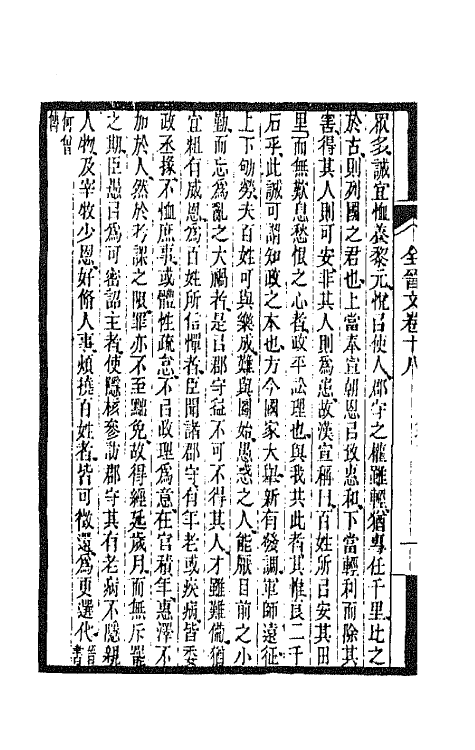 眾多誠宜恤養黎元悅㠯使人郡守之權雖輕猶專任千里比之
於古則列國之君也上當奉宣朝恩㠯致惠和下當輕利而除其
害得其人則可安非其人則為患故漢宣稱曰百姓所㠯安其田
里而無歎息愁恨之心者政平訟理也與我共此者其惟良二千
石乎此誠可謂知政之本也方今國家大舉新有發調軍師遠征
上下劬勞夫百姓可與樂成難與圖始愚惑之人能厭目前之小
勤而忘為亂之大禍者是㠯郡守益不可不得其人才雖難備猶
宜粗有威恩為百姓所信憚者臣聞諸郡守有年老或疾病皆委
政丞掾不恤庶事或體性疏怠不㠯政理為意在官積年惠澤不
加於人然於考課之限罪亦不至黜免故得經延歲月而無斥罷
之期臣愚㠯為可密詔主者使隱核參訪郡守其有老病不隱親
人物及宰牧少恩好脩人事煩撓百姓者皆可徵還為更選代晉書
何曾
傳
全晉文卷十八